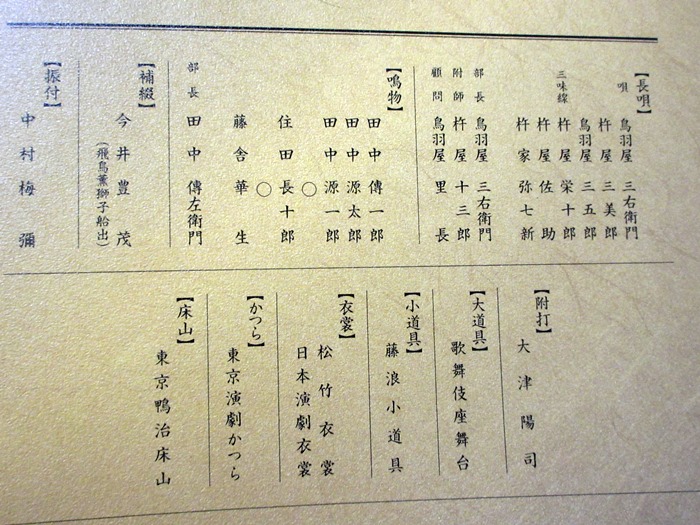 【長唄】
唄
鳥羽屋 三右衛門
杵屋 三美郎
鳥羽屋 三五郎
三味線
杵屋 栄十郎
杵屋 佐助
杵家 弥七新
部長 鳥羽屋 三右衛門
附師 杵屋 十三郎
顧問 鳥羽屋 里長
【鳴物】
田中 傳一郎
田中 源太郎
田中 源一郎
○
住田 長十郎
○
藤舎 華生
部長 田中 傳左衛門
【補綴】
今井 豊茂
(飛鳥薫獅子船出)
【振付】
中村 梅彌
【附打】
大津陽司
【大道具】
歌舞伎座舞台
【小道具】
藤浪小道具
【衣裳】
松竹衣裳
日本演劇衣裳
【かつら】
東京演劇かつら
【床山】
東京鴨治床山